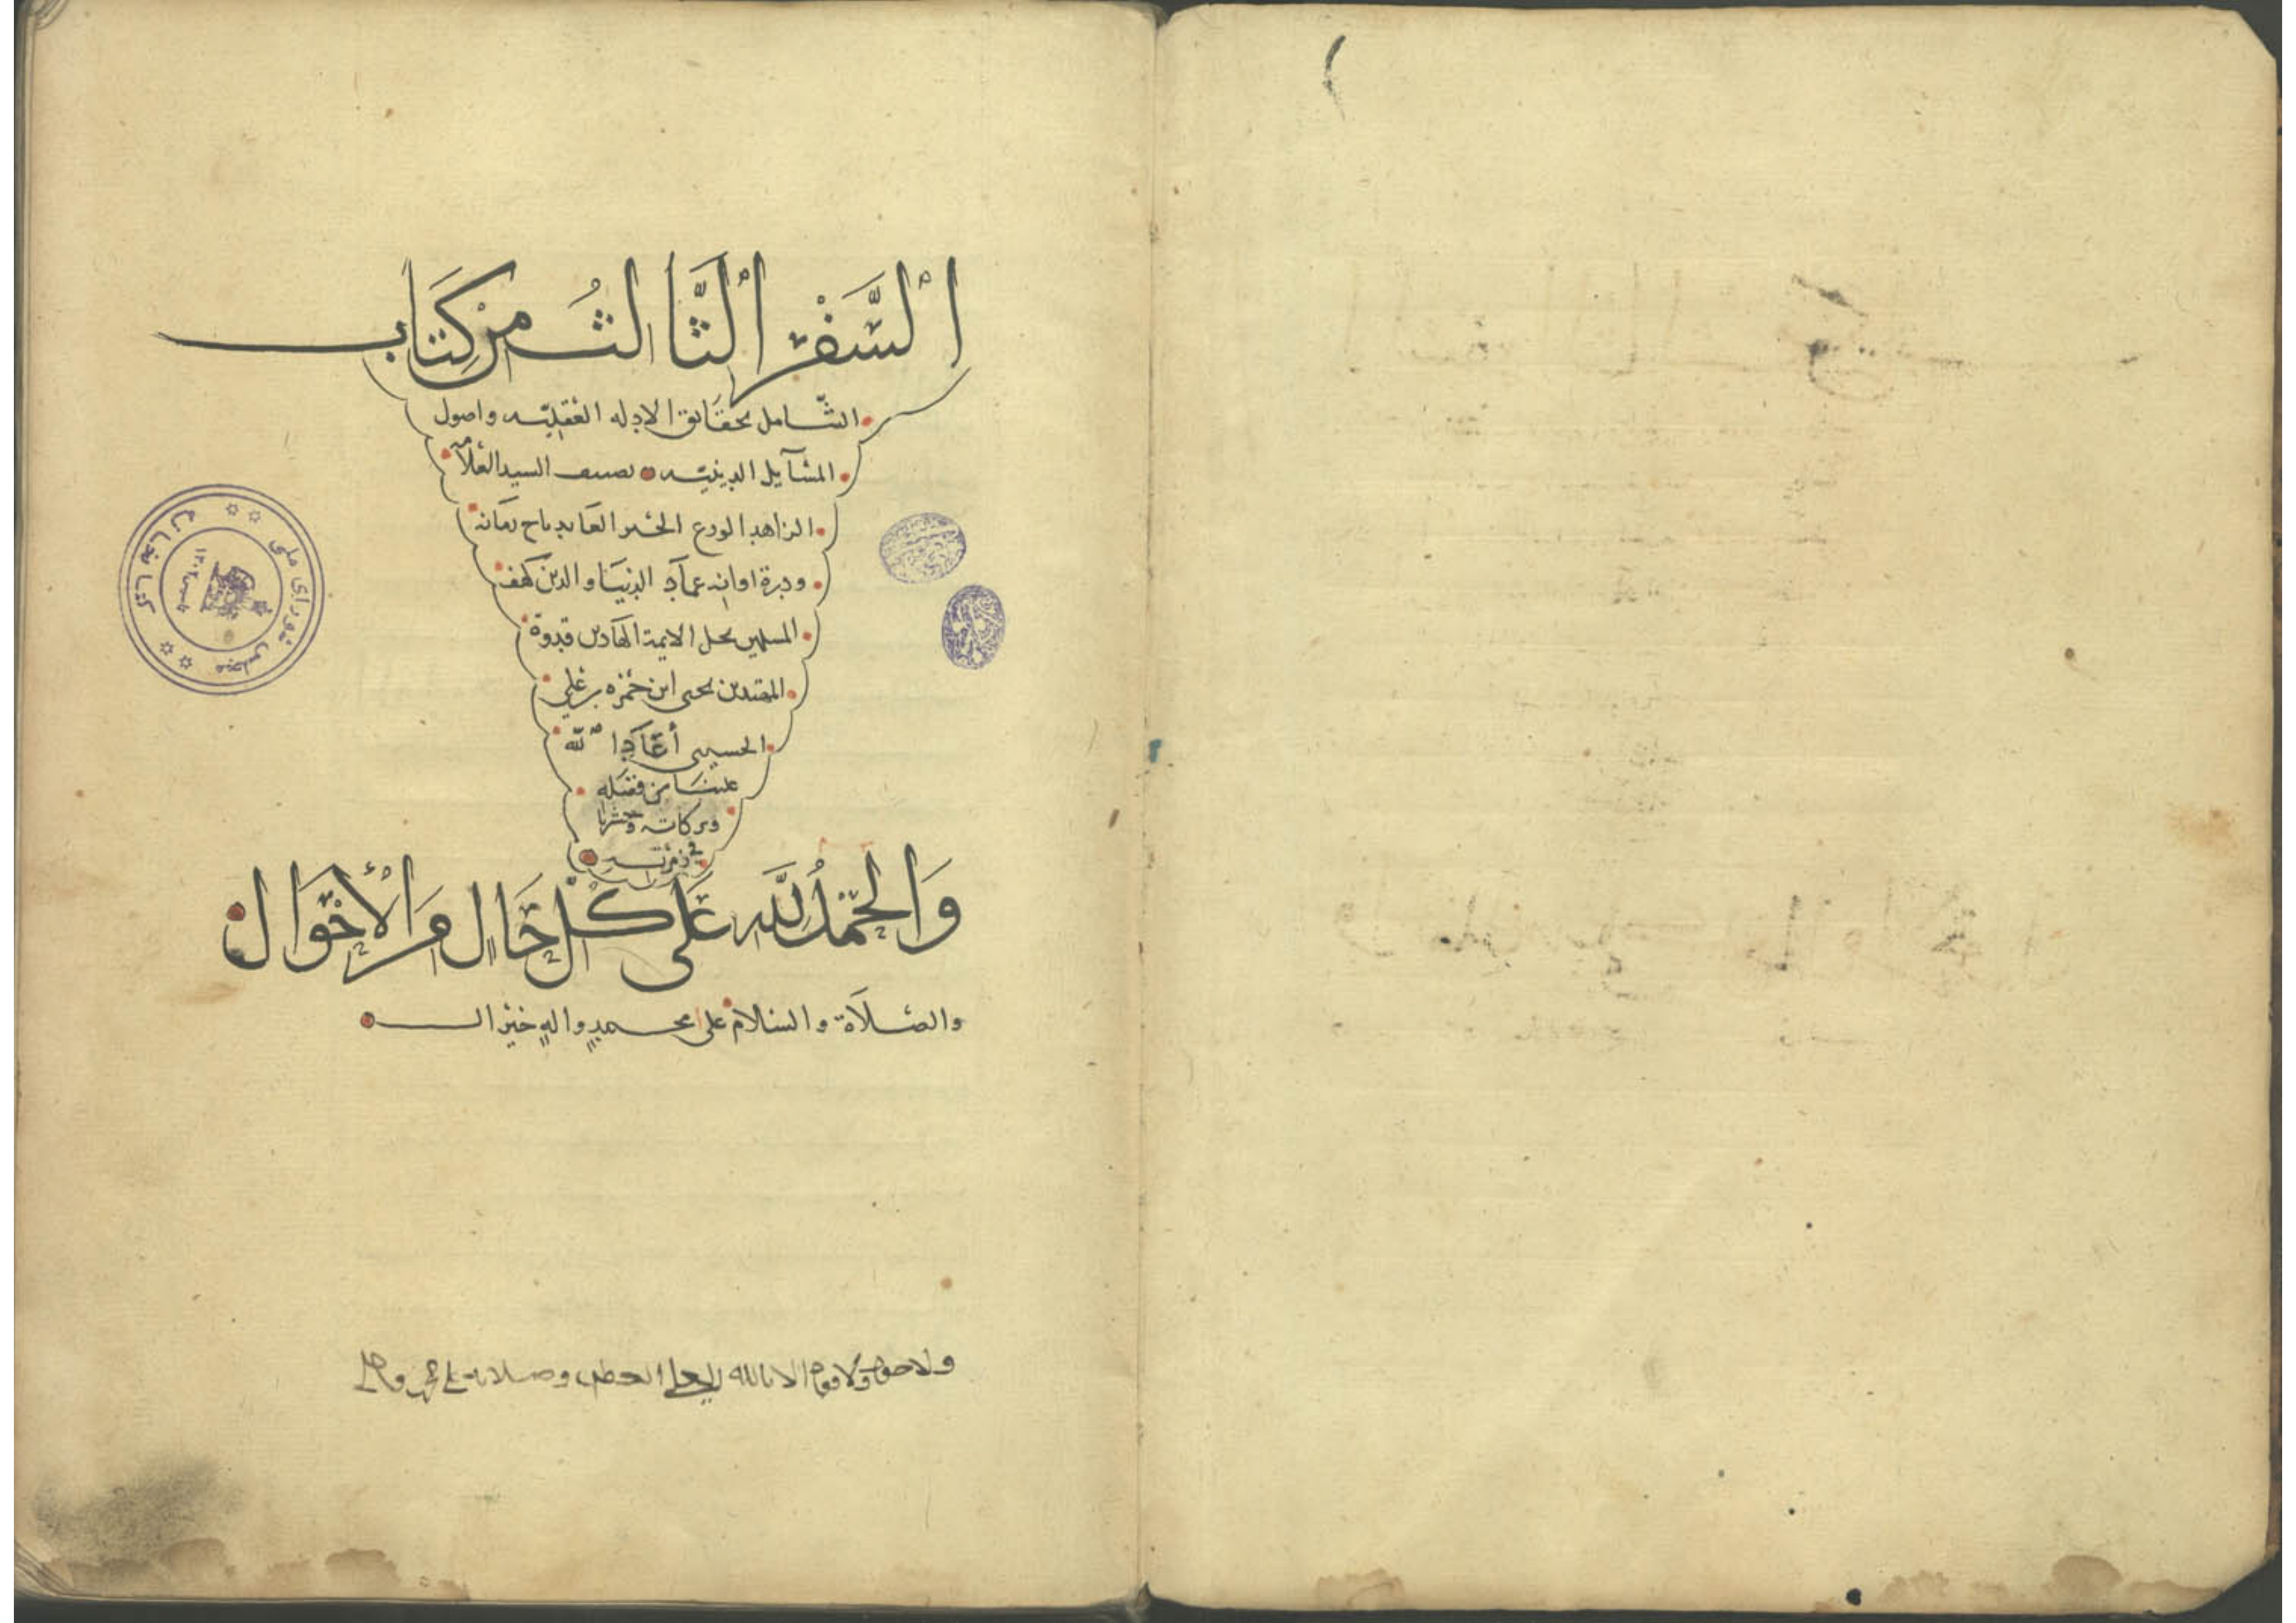 السَّفْر الثَّالث من كتاب
الشامل بحقايق الادله العقليه واصول
المسآيل الدينيه تصنيف السيد العلامه
الزاهد الورع الحبر العابد تاج زمانه
ودرة اوانه عماد الدنيا والدين كهف
المسلمين نجل الايمة الهادين قدوة
المقتدين يحيى ابن حمزه بن علي
الحسيني أعاد الله
علينا من فضله
وبركاته وحشرنا
في زمرته
وَالحَمْدُ لِلَّهِ عَلَى كُلِّ حَالٍ من الأَحْوَال
والصلاة والسلام على محمدٍ والهِ خير ال
ولا حول ولا قوه الا بالله العلي العظيم وصلاته على محمد واله
كتابخانه مجلس شورای ملی